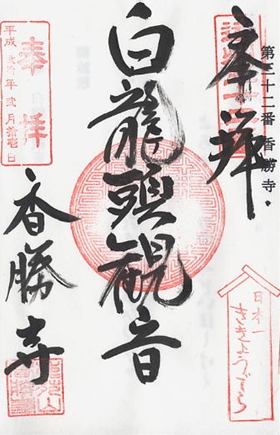 奉拝
第三十二番 香勝寺
白龍頭観音
香勝寺
奉拝
平成 年弐月拾壱日
日本一
ききょうでら